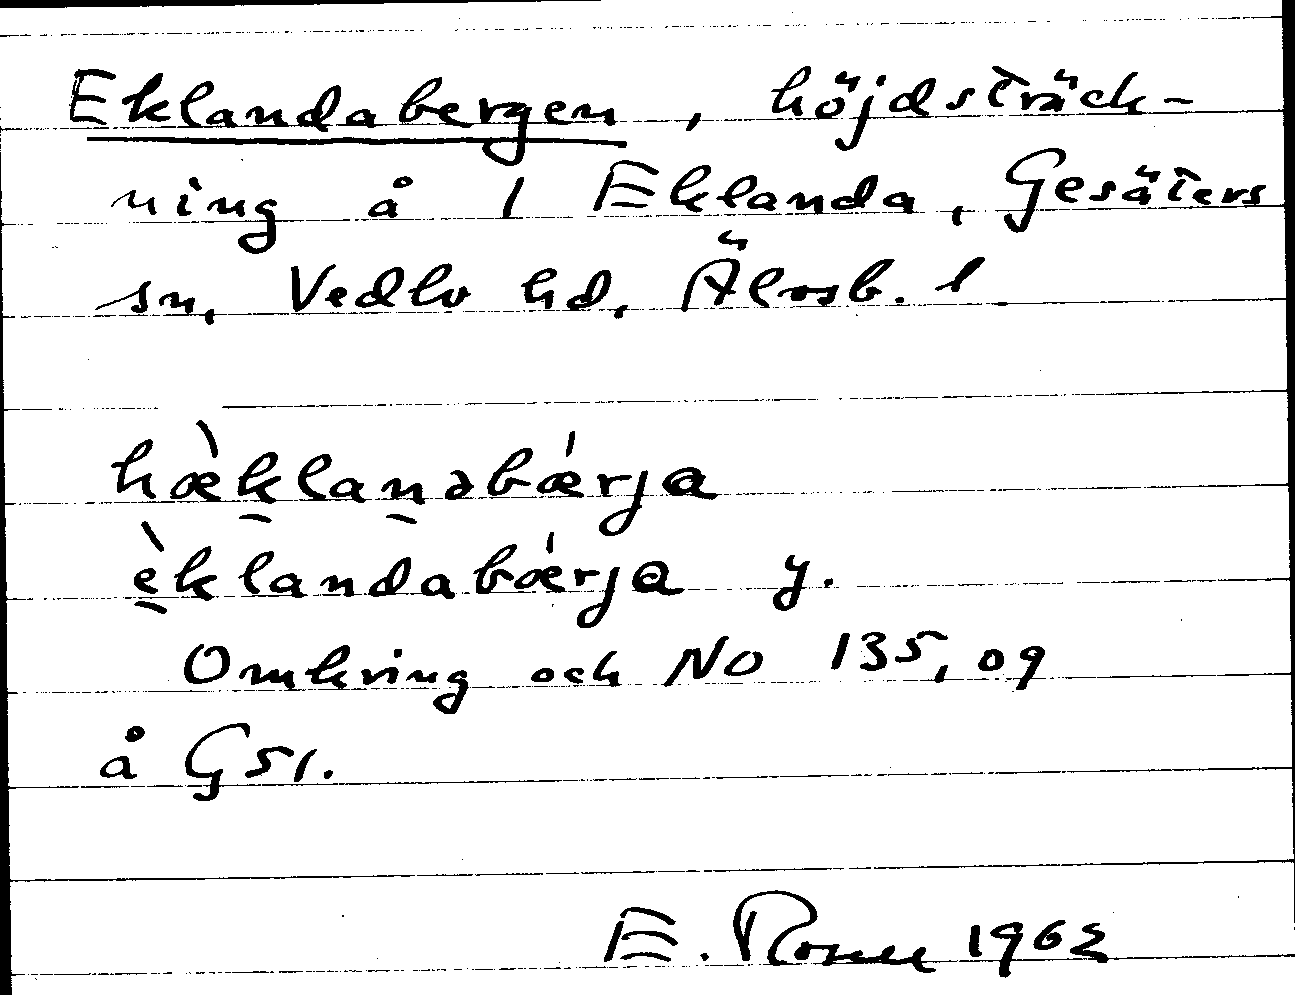 Eklandabergen, höjdsträck-
ning å 1 Eklanda, Gesäters
sn, Vedbo hd, Älvsb. l
hæ̀klanəbǽrja
èklandabǽrja y.
Omkring och NO 135,09
å G51.
E. 1962